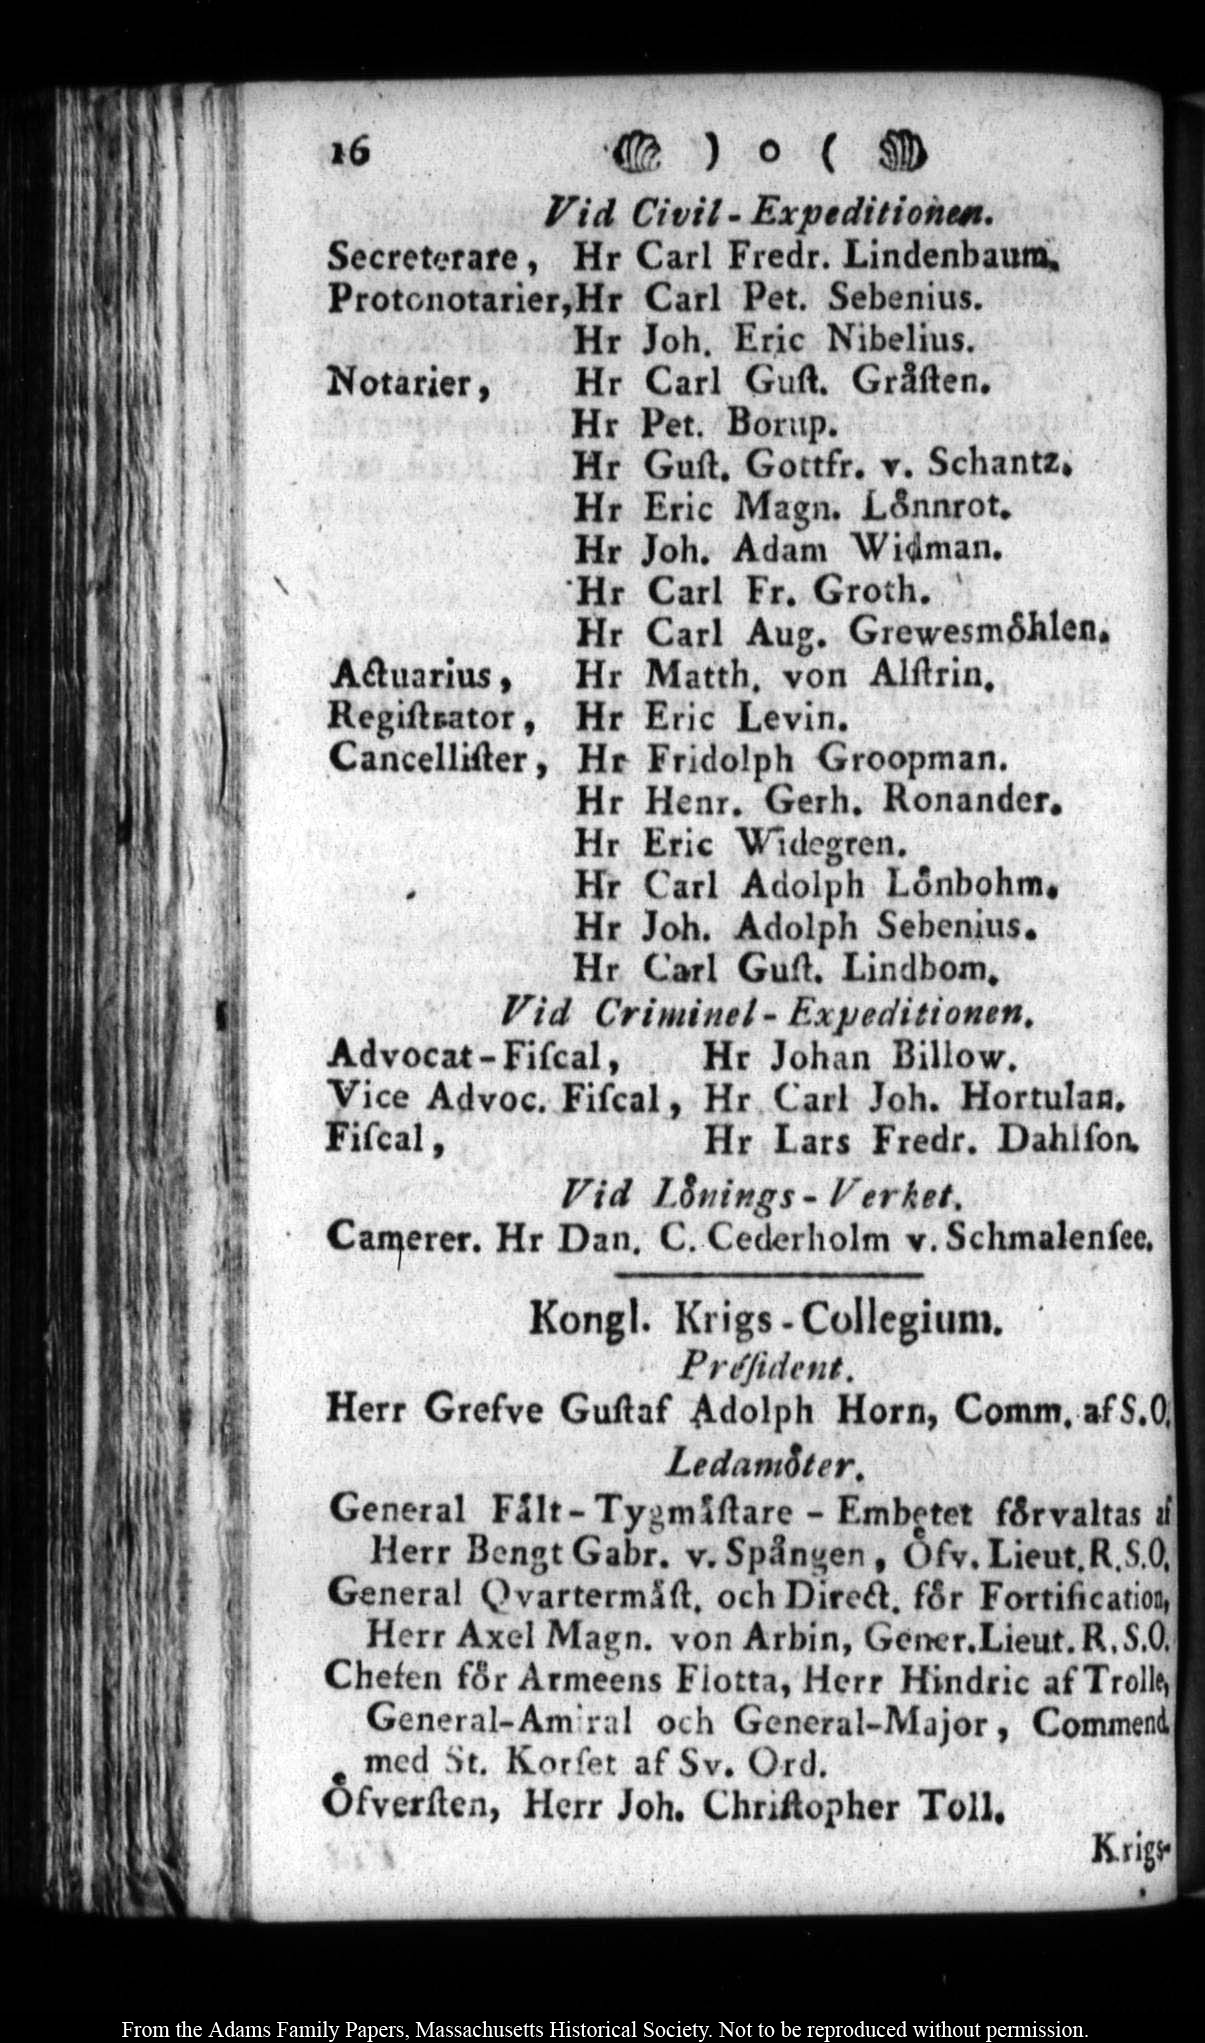 16 ) o (
Vid Civil-Expeditionen.
Secreterare, Hr Carl Fredr. Lindenbaum.
Protonotarier, Hr Carl Pet. Sebenius.
Hr Joh. Eric Nibelius.
Notarier, Hr Carl Guſt. Gråſten.
Hr Pet. Borup.
Hr Guſt. Gottfr. v. Schantz.
Hr Eric Magn. Loͤnnrot.
Hr Joh. Adam Widman.
Hr Carl Fr. Groth.
Hr Carl Aug. Grewesmoͤhlen.
Actuarius, Hr Matth. von Alſtrin.
Regiſtrator, Hr Eric Levin.
Cancelliſter, Hr Fridolph Groopman.
Hr Henr. Gerh. Ronander.
Hr Eric Widegren.
Hr Carl Adolph Loͤnbohm.
Hr Joh. Adolph Sebenius.
Hr Carl Guſt. Lindbom.
Vid Criminel-Expeditionen.
Advocat-Fiſcal, Hr Johan Billow.
Vice Advoc. Fiſcal, Hr Carl Joh. Hortulan.
Fiſcal, Hr Lars Fredr. Dahlſon.
Vid Loͤnings-Verket.
Camerer. Hr Dan. C. Cederholm v. Schmalenſee.
Kongl. Krigs-Collegium.
Préſident.
Herr Grefve Guſtaf Adolph Horn, Comm. af S.O.
Ledamoͤter.
General Faͤlt-Tygmaͤſtare - Embetet foͤrvaltas af
Herr Bengt Gabr. v. Spången, Oͤfv. Lieut. R.S.O.
General Qvartermaͤſt. och Direct. foͤr Fortification,
Herr Axel Magn. von Arbin, Gener. Lieut. R.S.O.
Chefen foͤr Armeens Flotta, Herr Hindric af Trolle,
General-Amiral och General-Major, Commend.
med St. Korſet af Sv. Ord.
Oͤfverſten, Herr Joh. Chriſtopher Toll.
Krigs-
From the Adams Family Papers, Massachusetts Historical Society. Not to be reproduced without permission.